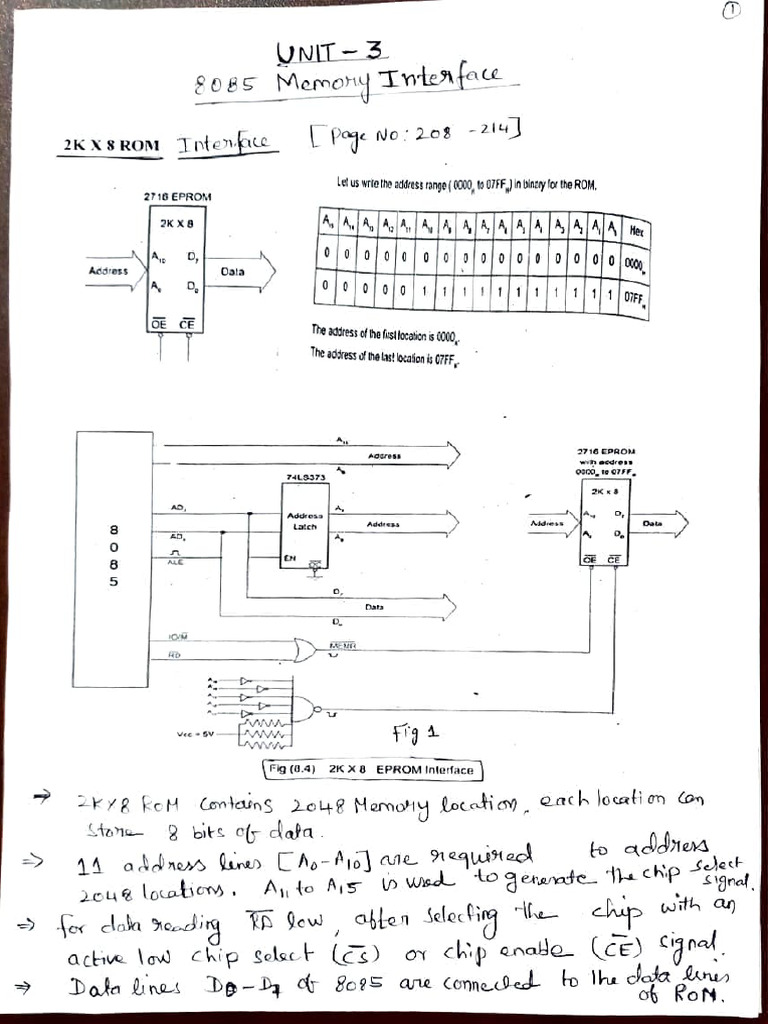 1
UNIT - 3
8085 Memory Interface
2K X 8 ROM Interface [Page No: 208 - 214]
2716 EPROM
2K X 8
A10 D7
Address Data
A0 D0
OE CE
Let us write the address range ( 0000H to 07FFH ) in binary for the ROM.
A15 A14 A13 A12 A11 A10 A9 A8 A7 A6 A5 A4 A3 A2 A1 A0 Hex
0 0 0 0 0 0 0 0 0 0 0 0 0 0 0 0 0000H
0 0 0 0 0 1 1 1 1 1 1 1 1 1 1 1 07FFH
The address of the first location is 0000H.
The address of the last location is 07FFH.
8085
A15
Address
A8
74LS373
AD7
Address Latch
A7
Address
A0
AD0
ALE
EN
OE
D7
Data
D0
IO/M
RD
MEMR
Vcc = 5V
2716 EPROM
with address
0000H to 07FFH
2K x 8
A10 D7
Address Data
A0 D0
OE CE
Fig 1
Fig (8.4) 2K X 8 EPROM Interface
→ 2KX8 ROM Contains 2048 Memory location, each location can
store 8 bits of data.
⇒ 11 address lines [A0 - A10] are required to address
2048 locations. A11 to A15 is used to generate the chip select
signal.
⇒ for data reading RD low, after selecting the chip with an
active low chip select (CS) or chip enable (CE) signal.
⇒ Data lines D0 - D7 of 8085 are connected to the data lines
of ROM.